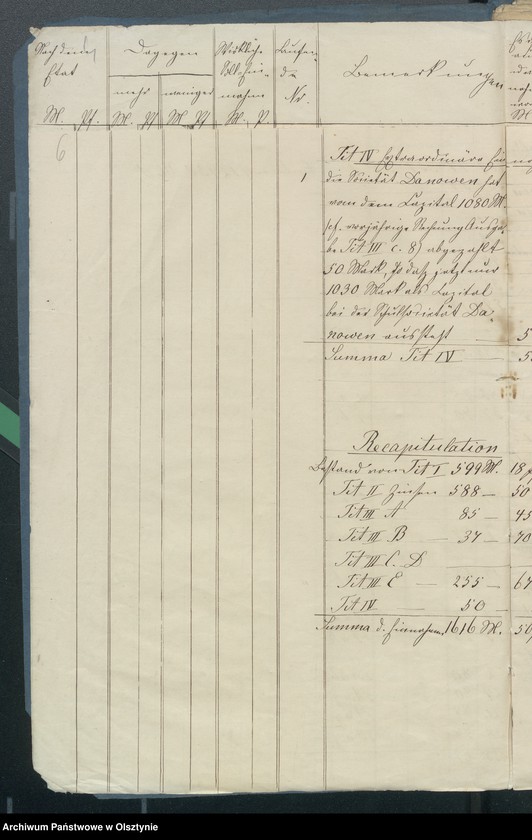 Nach dem
Etat
Dagegen
mehr weniger
Wirkliche
Soll-Ein-
nahme
Laufen-
de
Nr.
Bemerkungen
M. Pf. M. Pf M. Pf M. P.
6
Tit IV Extraordinäre Ein
1 die Societät Danowen hat
von dem Capital 1080 M.
vorjährige Rechnung Ausga-
be Tit III c. 8) abgezahlt
50 Mark, so daß jetzt nur
1030 Mark als Capital
bei der Schulsocietät Da-
nowen aussteht
Summa Tit IV
Recapitulation
Bestand von Tit I 599 M. 18
Tit II Zinsen 588 — 50
Tit III A 85 — 45
Tit III B — 37 — 70
Tit III C. D
Tit III E — 255 — 67
Tit IV — 50 —
Summa d. Einnahme 1616 M. 50
Archiwum Państwowe w Olsztynie